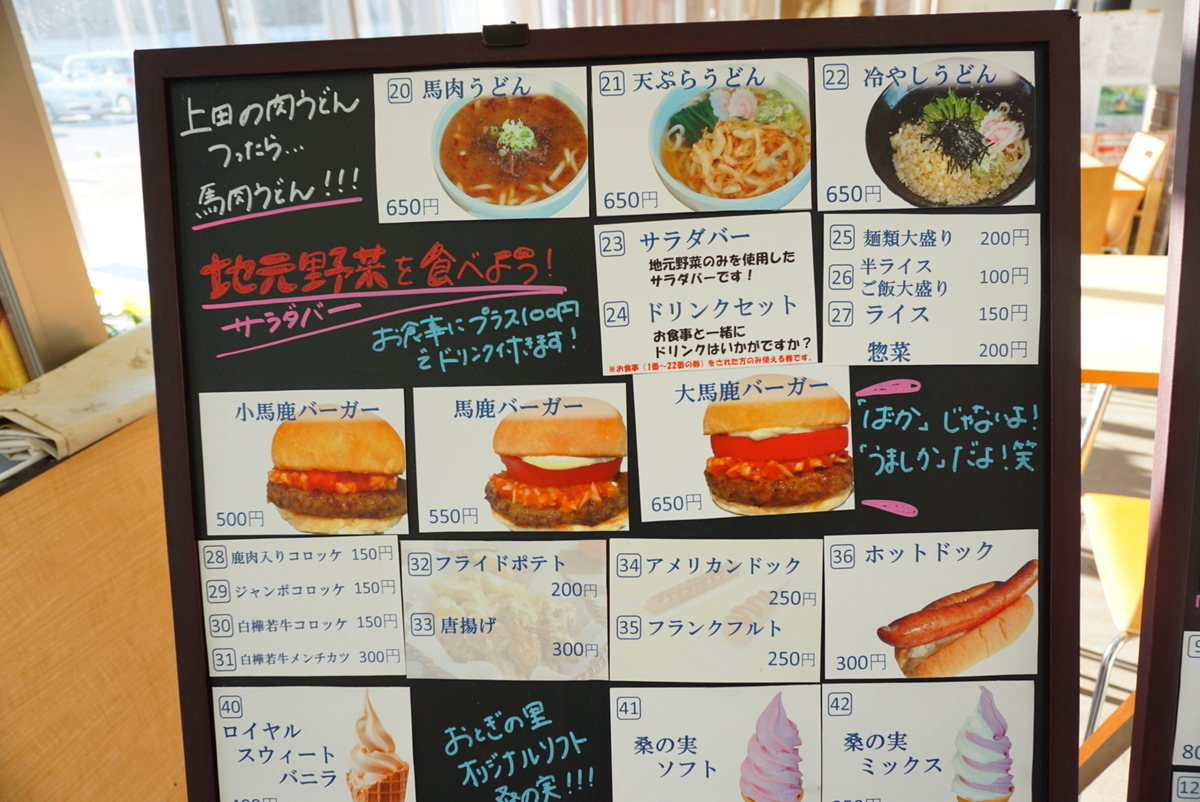 上田の肉うどん
つったら...
馬肉うどん!!!
20 馬肉うどん
650円
21 天ぷらうどん
650円
22 冷やしうどん
650円
地元野菜を食べよう!
サラダバー
お食事にプラス100円
でドリンク付きます!
23 サラダバー
地元野菜のみを使用した
サラダバーです!
24 ドリンクセット
お食事と一緒に
ドリンクはいかがですか?
※お食事(1番~22番の券)をされた方のみ使える券です。
25 麺類大盛り 200円
26 半ライス
ご飯大盛り 100円
27 ライス 150円
惣菜 200円
小馬鹿バーガー
500円
馬鹿バーガー
550円
大馬鹿バーガー
650円
「ばか」じゃないよ!
「うましか」だよ!笑
28 鹿肉入りコロッケ 150円
29 ジャンボコロッケ 150円
30 白樺若牛コロッケ 150円
31 白樺若牛メンチカツ 300円
32 フライドポテト
200円
33 唐揚げ
300円
34 アメリカンドック
250円
35 フランクフルト
250円
36 ホットドック
300円
40
ロイヤル
スウィート
バニラ
おとぎの里
オリジナルソフト
桑の実!!!
41
桑の実
ソフト
42
桑の実
ミックス